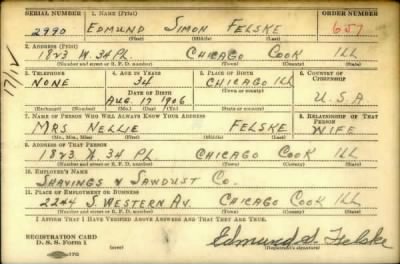 SERIAL NUMBER 1. NAME (Print) ORDER NUMBER
2990 EDMUND SIMON FELSKE 657
(First) (Middle) (Last)
2. ADDRESS (Print)
1823 W. 34 PL. CHICAGO COOK ILL
(Number and street or R. F. D. number) (Town) (County) (State)
3. TELEPHONE 4. AGE IN YEARS 5. PLACE OF BIRTH 6. COUNTRY OF CITIZENSHIP
NONE 34 CHICAGO
DATE OF BIRTH (Town or county)
AUG. 17 1906 ILL U.S.A
(Exchange) (Number) (Mo.) (Day) (Yr.) (State or country)
7. NAME OF PERSON WHO WILL ALWAYS KNOW YOUR ADDRESS 8. RELATIONSHIP OF THAT PERSON
MRS NELLIE FELSKE WIFE
(Mr., Mrs., Miss) (First) (Middle) (Last)
9. ADDRESS OF THAT PERSON
1823 W. 34 PL CHICAGO COOK ILL
(Number and street or R. F. D. number) (Town) (County) (State)
10. EMPLOYER'S NAME
SHAVINGS & SAWDUST CO.
11. PLACE OF EMPLOYMENT OR BUSINESS
2244 S. WESTERN AV. CHICAGO COOK ILL
(Number and street or R. F. D. number) (Town) (County) (State)
I AFFIRM THAT I HAVE VERIFIED ABOVE ANSWERS AND THAT THEY ARE TRUE.
REGISTRATION CARD
D. S. S. Form 1 Edmund S. Felske
(Registrant's signature)